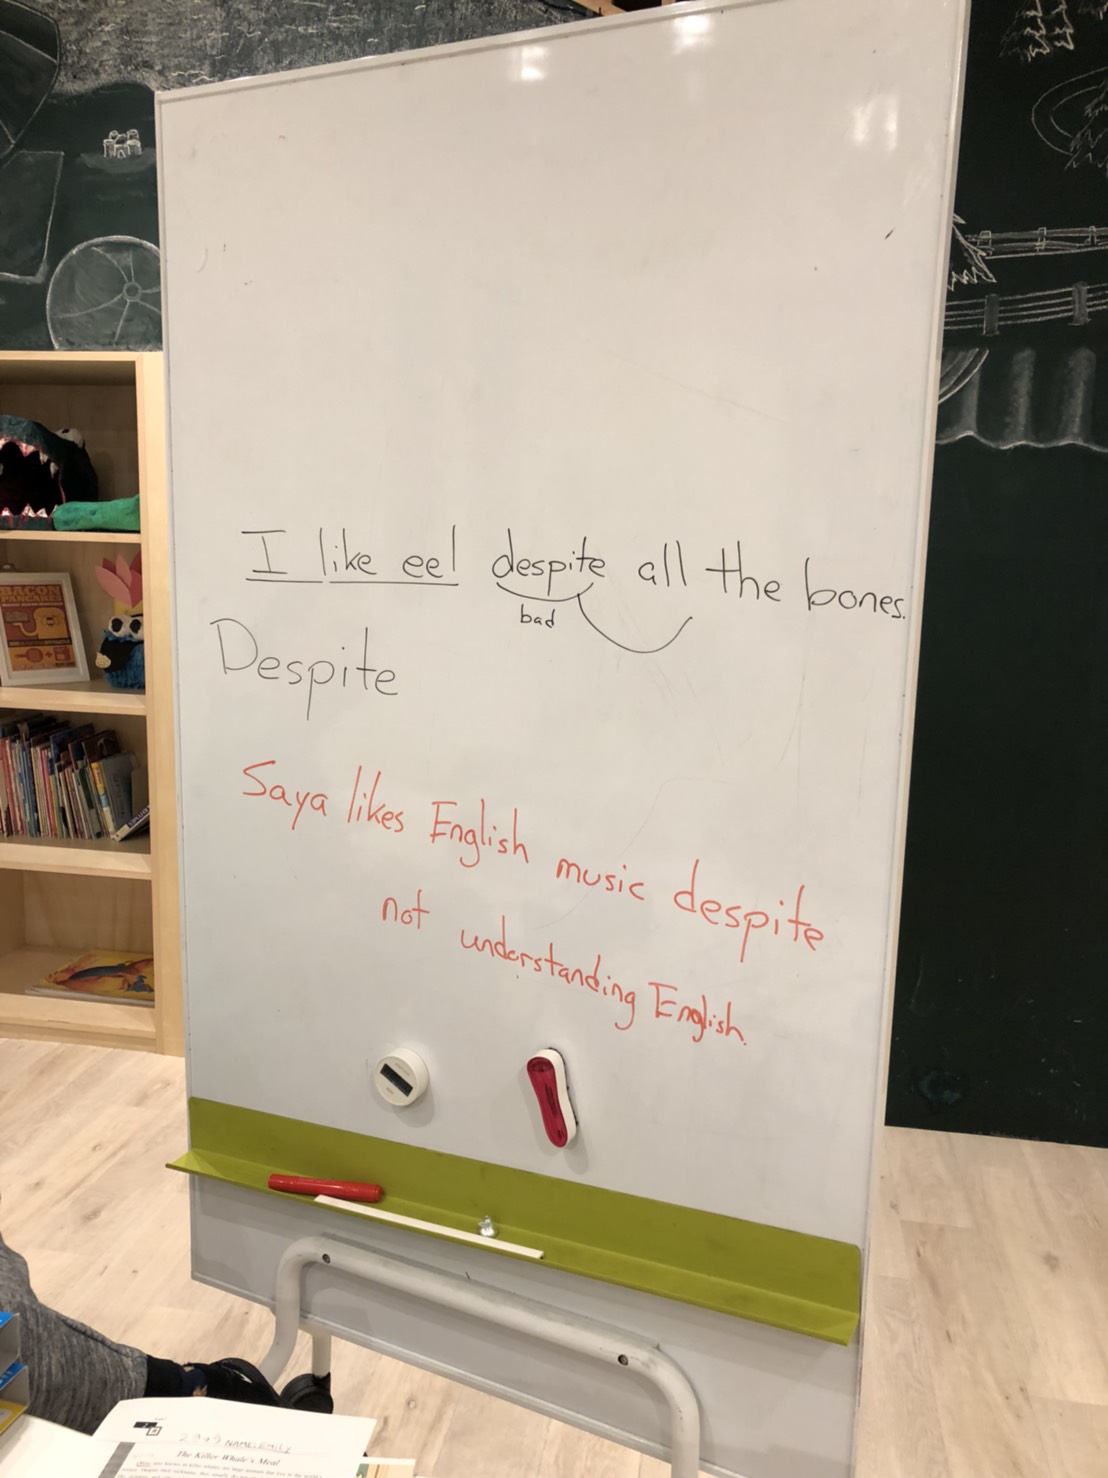 I like eel despite all the bones.
bad
Despite
Saya likes English music despite
not understanding English.
BACON
PANCAKES
NAME: EMILY
The Killer Whale's Meal